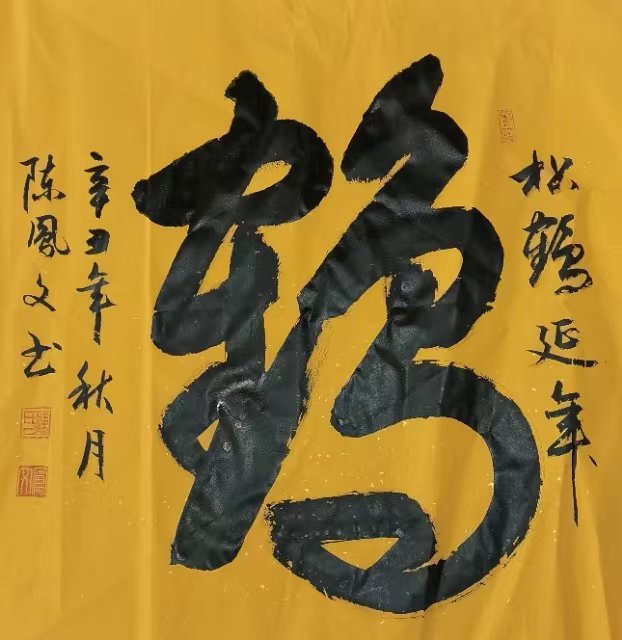 松鹤延年
鹤
辛丑年秋月
陈凤文书